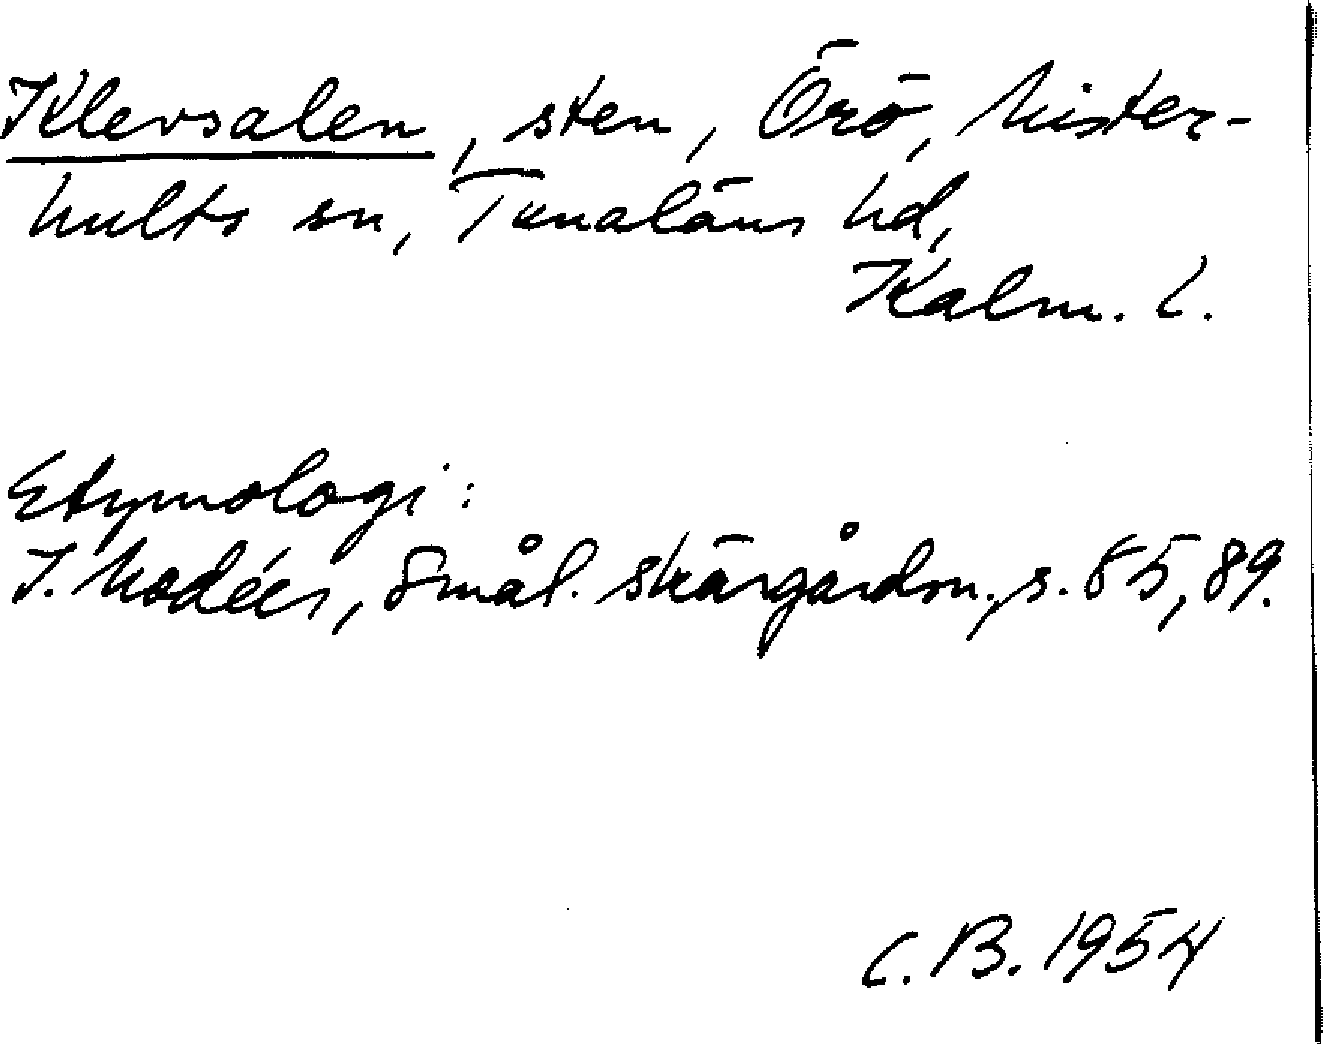 Klevsalen, sten, Örö, Mister-
hults sn, Tunaläns hd,
Kalm. l.
Etymologi:
I. Modéer, Smål. skärgårdsn., s. 85, 89.
C. B. 1954